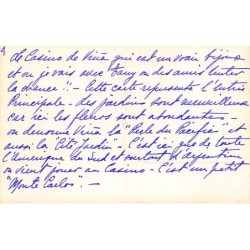 4
Le Casino de Viña qui est un vrai bijou
et où je vais avec Fany ou des amis tenter
la chance !! - Cette carte représente l'entrée
Principale - Les jardins sont merveilleux
car ici les fleurs sont abondantes -
on dénomme Viña la "Perle du Pacifique" et
aussi la "Cité Jardin" - C'est ici que de toute
l'Amérique du Sud et surtout d'Argentine
on vient jouer au Casino - C'est un petit
"Monte Carlo". -